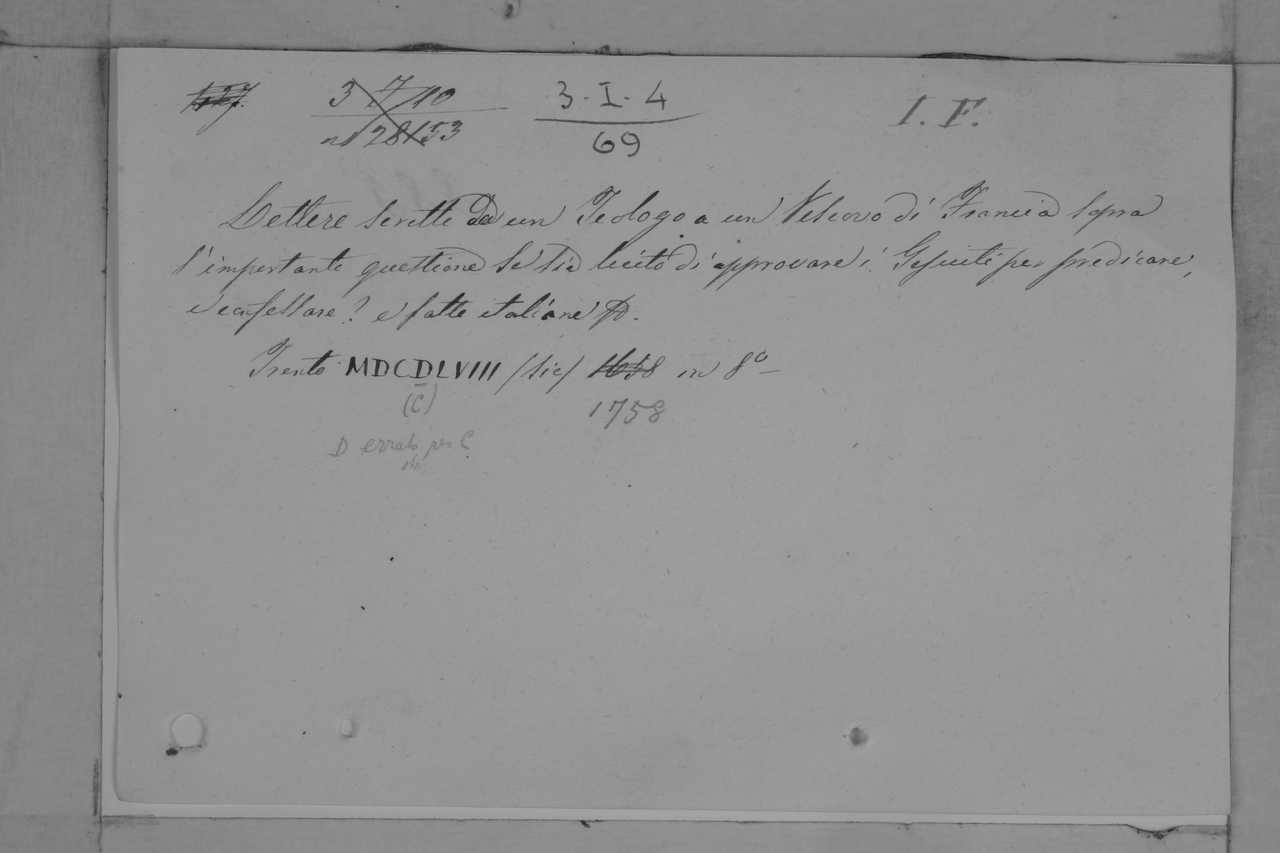 3 7/10 3·I·4 I. F.
nº 28153 69
Lettere scritte da un Teologo a un Vescovo di Francia sopra
l'importante questione se sia lecito di approvare i Gesuiti per predicare,
e confessare? e fatte italiane
Trento MDCDLVIII (sic) 1658 in 8º
(C) 1758
D errato per C